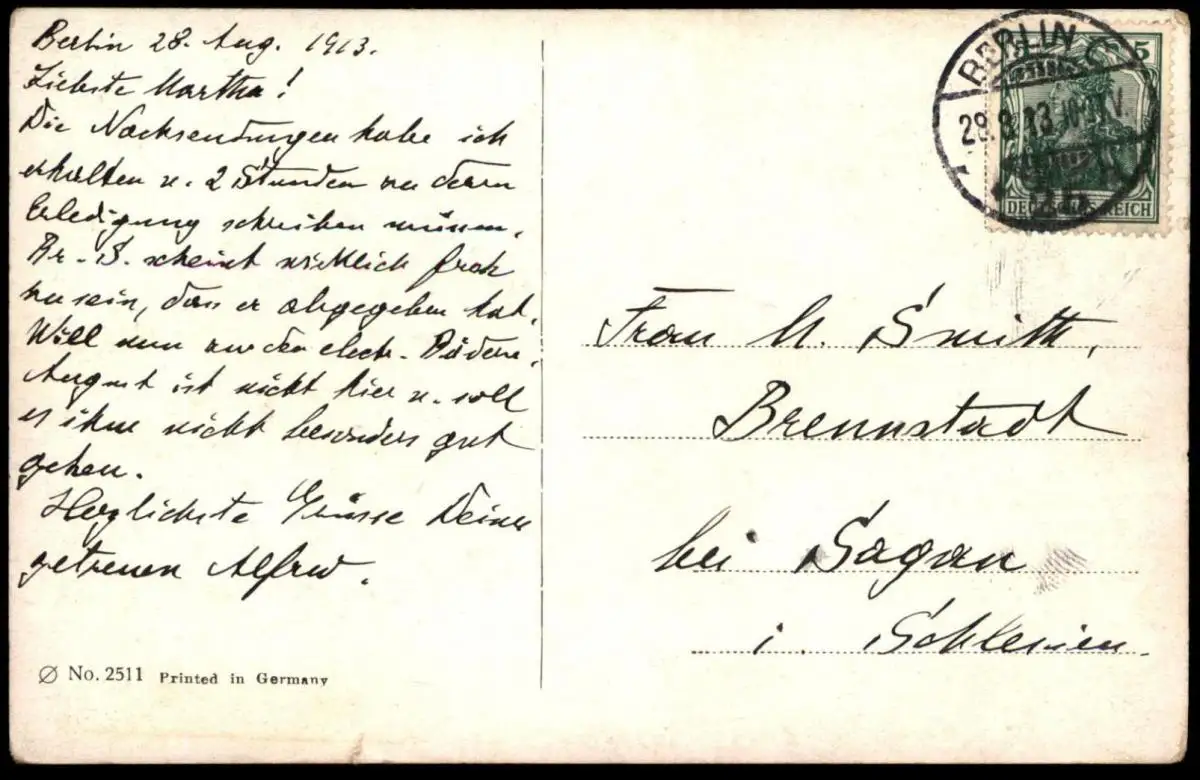 Berlin 28. Aug. 1913.
Liebste Martha!
Die Nachsendungen habe ich
erhalten u. 2 Stunden zu deren
Erledigung schreiben müssen.
Dr. S. scheint wirklich froh
zu sein, dass er abgegeben hat.
Will nun zu den elect. Bädern.
August ist nicht hier u. soll
es ihm nicht besonders gut
gehen.
Herzlichste Grüsse Deines
getreuen Alfred.
No. 2511 Printed in Germany
BERLIN C
28.8.13
5
DEUTSCHES REICH
Frau M. Smith,
Brennstadt
bei Sagan
i. Schlesien.